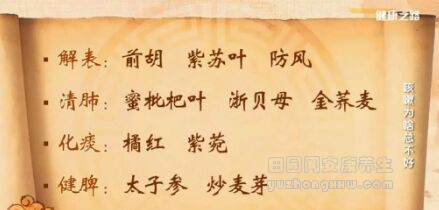 健康之路
解表：前胡 紫苏叶 防风
清肺：蜜枇杷叶 浙贝母 金荞麦
化痰：橘红 紫菀
健脾：太子参 炒麦芽
咳嗽为啥总不好
田园网安康养生
yuzhongwxw.com